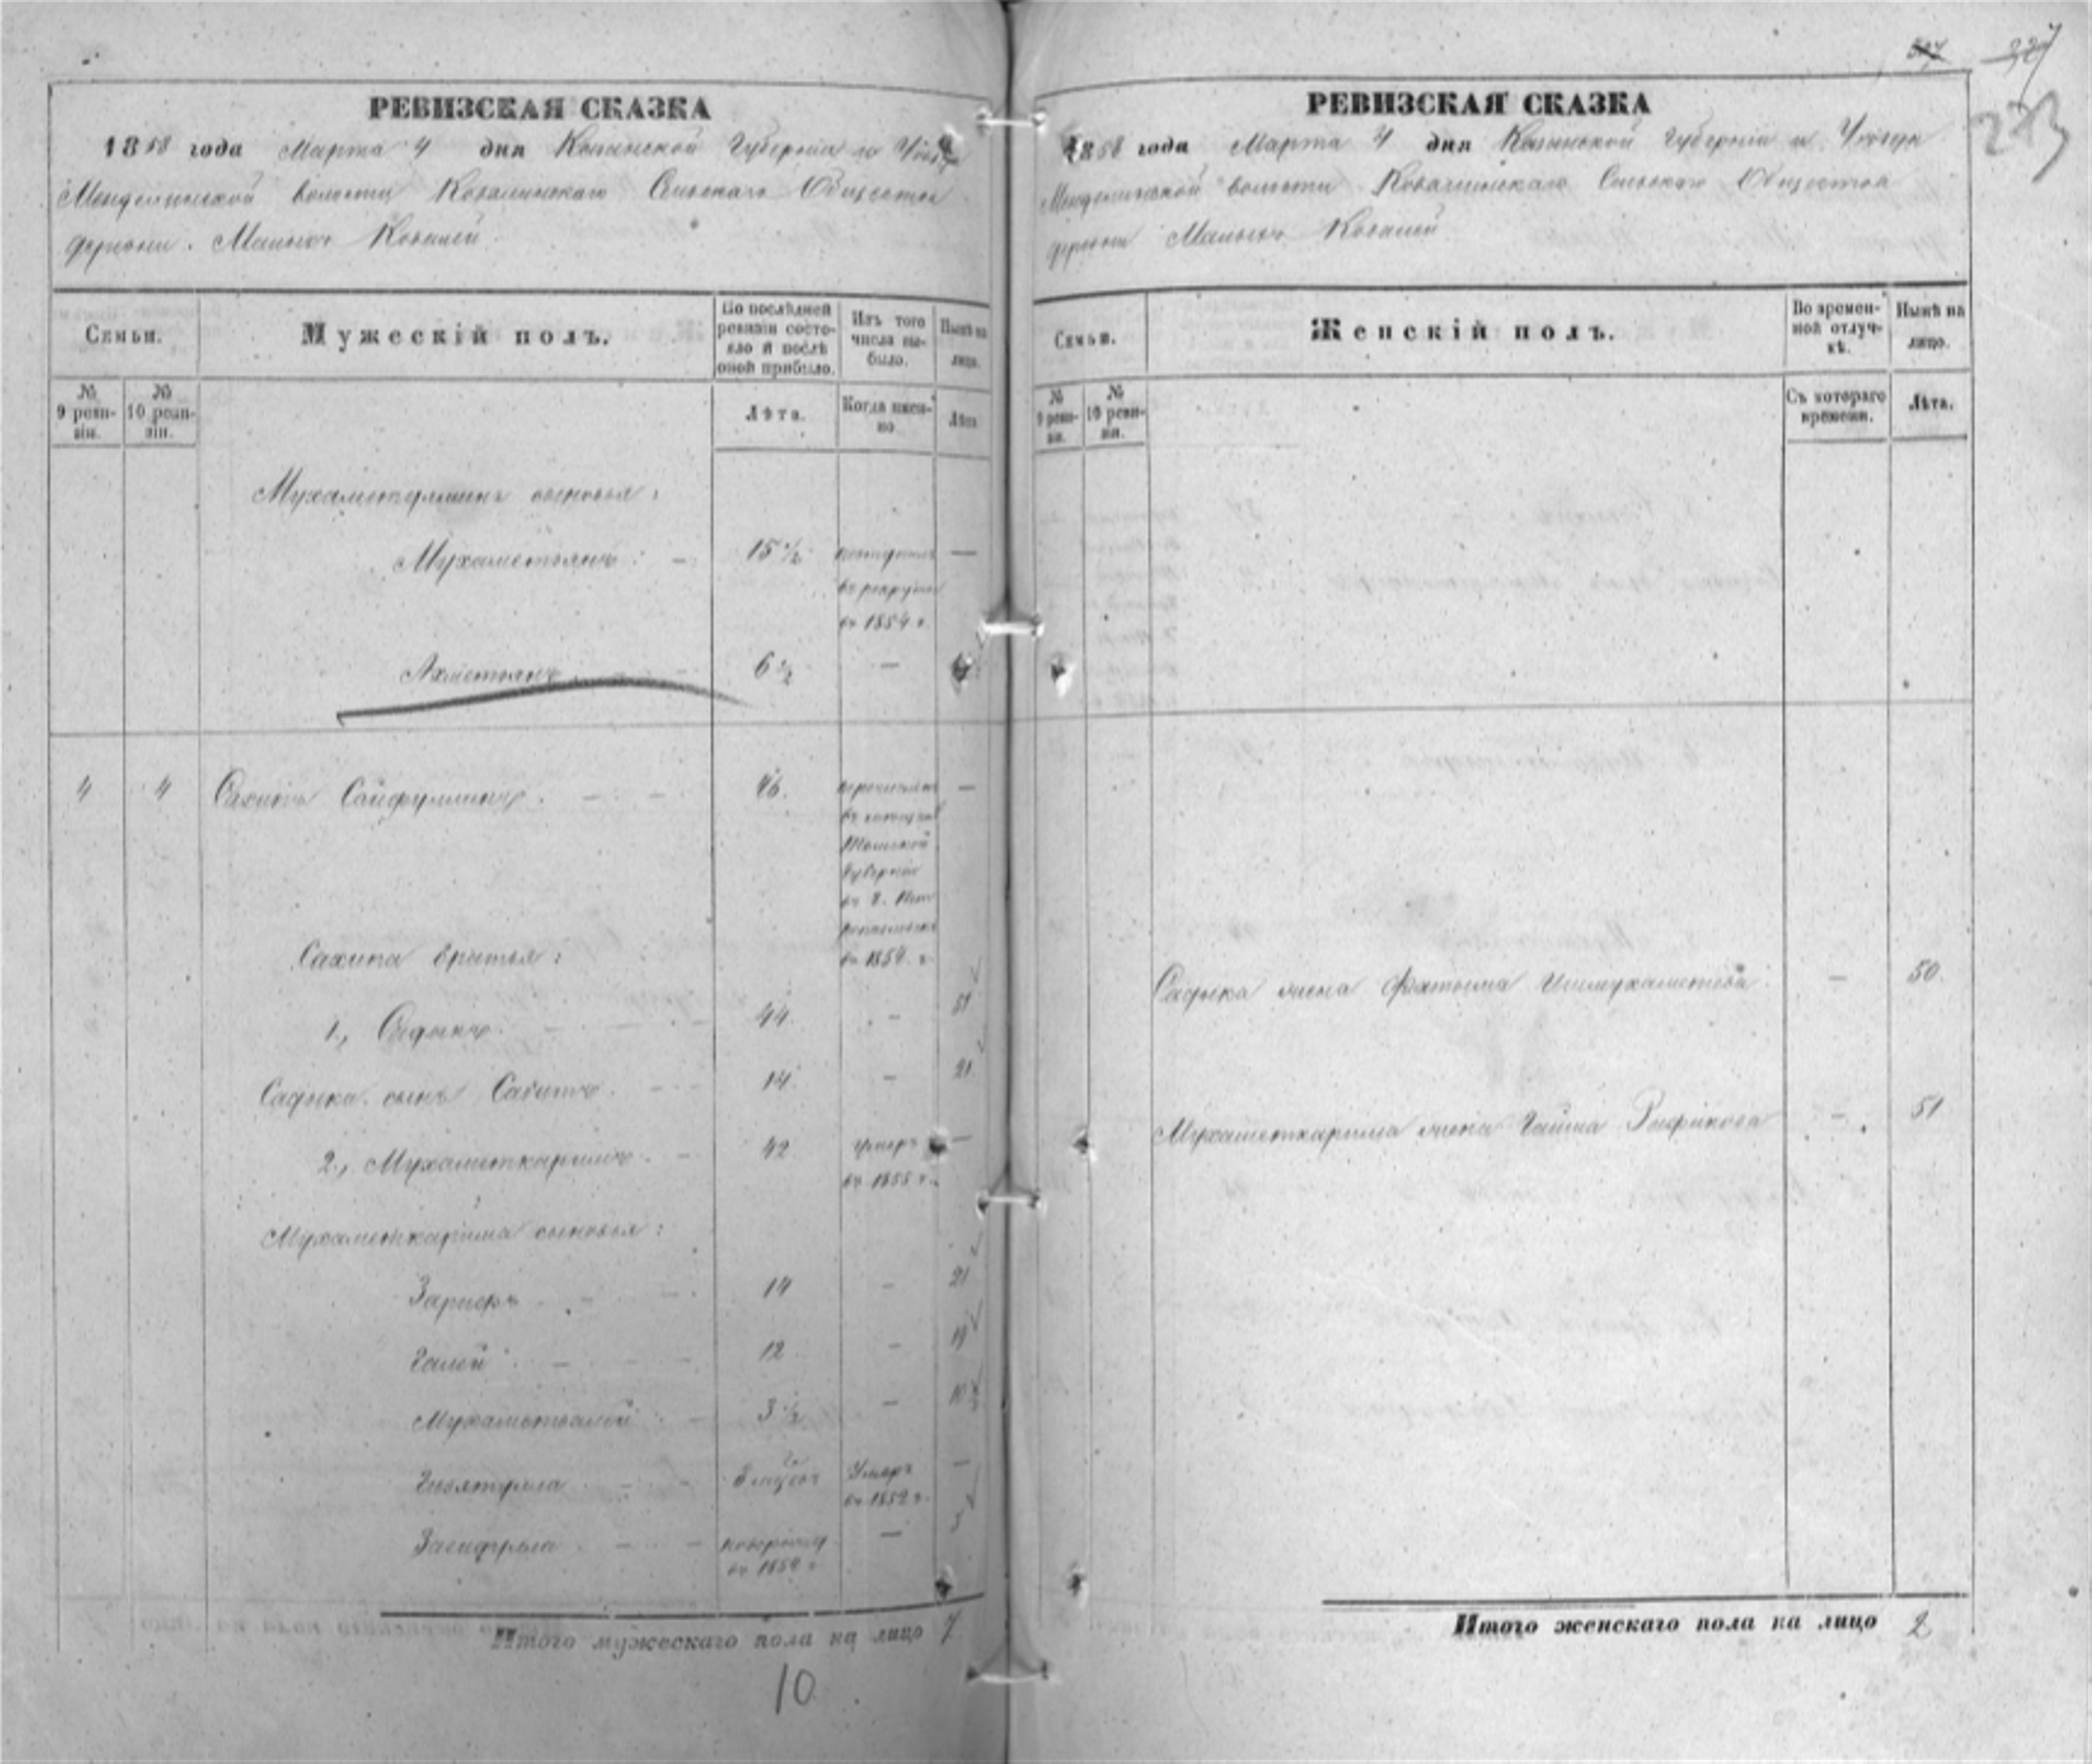 РЕВИЗСКАЯ СКАЗКА
1858 года Марта 4 дня Казанской Губернии и Уезда
волости Ковалинскаго Сельскаго Общества
деревни Малыхъ Ковалей
Семьи.
Мужескій полъ.
По послѣдней ревизіи состояло и послѣ оной прибыло.
Изъ того числа выбыло.
Нынѣ на лицо.
№ 9 ревизіи.
№ 10 ревизіи.
Лѣта.
Когда именно
Лѣта
сыновья:
Мухаметзянъ 15 ½ —
въ рекруты
въ 1854 г.
Ахметзянъ 6 ½ —
4 4 Сахипъ Сайфуллинъ 46. —
въ
Томской
Губерніи
въ 1854 г.
Сахипа братья:
1., Садыкъ 44. — 51
Садыка сынъ Сабитъ 14. — 21
2., Мухаметкаримъ 42 умеръ —
въ 1855 г.
Мухаметкарима сыновья:
Зарифъ 14 — 21
Галей 12 — 19
Мухаметвалей 3 ½ — 10 ½
Гизятулла Умеръ —
въ 1852 г.
Загидулла —
въ 1854 г.
Итого мужескаго пола на лицо 7
10
227
273
РЕВИЗСКАЯ СКАЗКА
1858 года Марта 4 дня Казанской Губерніи и Уезда
волости Ковалинскаго Сельскаго Общества
деревни Малыхъ Ковалей
Семьи.
Женскій полъ.
Во временной отлучкѣ.
Нынѣ на лицо.
№ 9 ревизіи.
№ 10 ревизіи.
Съ котораго времени.
Лѣта.
Садыка жена Фатыма Ишмухаметева — 50.
Мухаметкарима жена Гайша Рафикова — 51
Итого женскаго пола на лицо 2